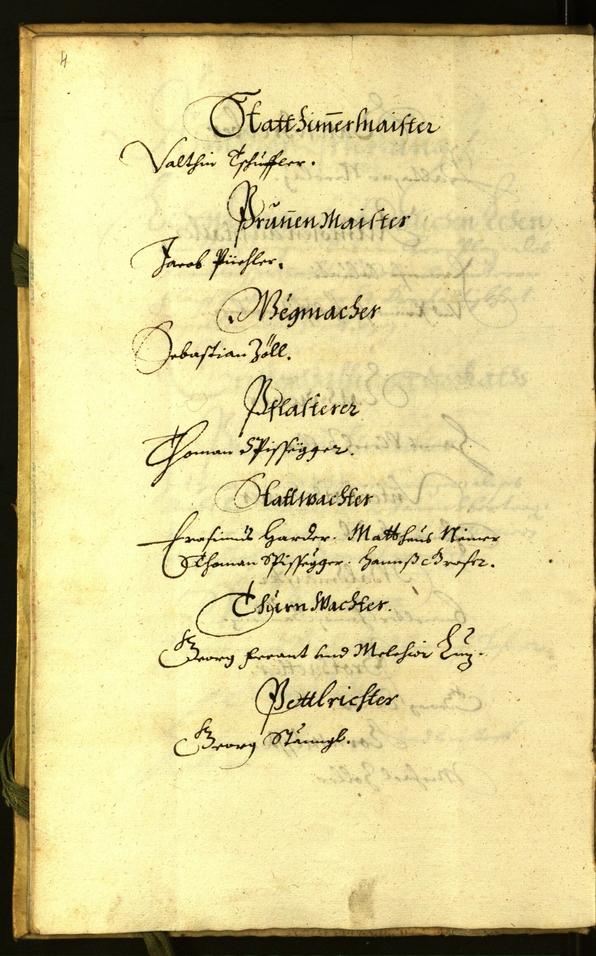 4
Statt Zim̄ermaister
Valthin Tschüffler.
Prun̄en Maister
Jacob Püehler.
Wegmacher
Sebastian Zöll.
Pflasterer
Thoman Spissegger.
Stattwachter
Erasimus Harder. Matthäus Nemer
Thoman Spissegger. Hannß Groser.
Thurn Wachter.
Georg Ferant und Melchior Luz.
Pettlrichter
Georg Stängl.